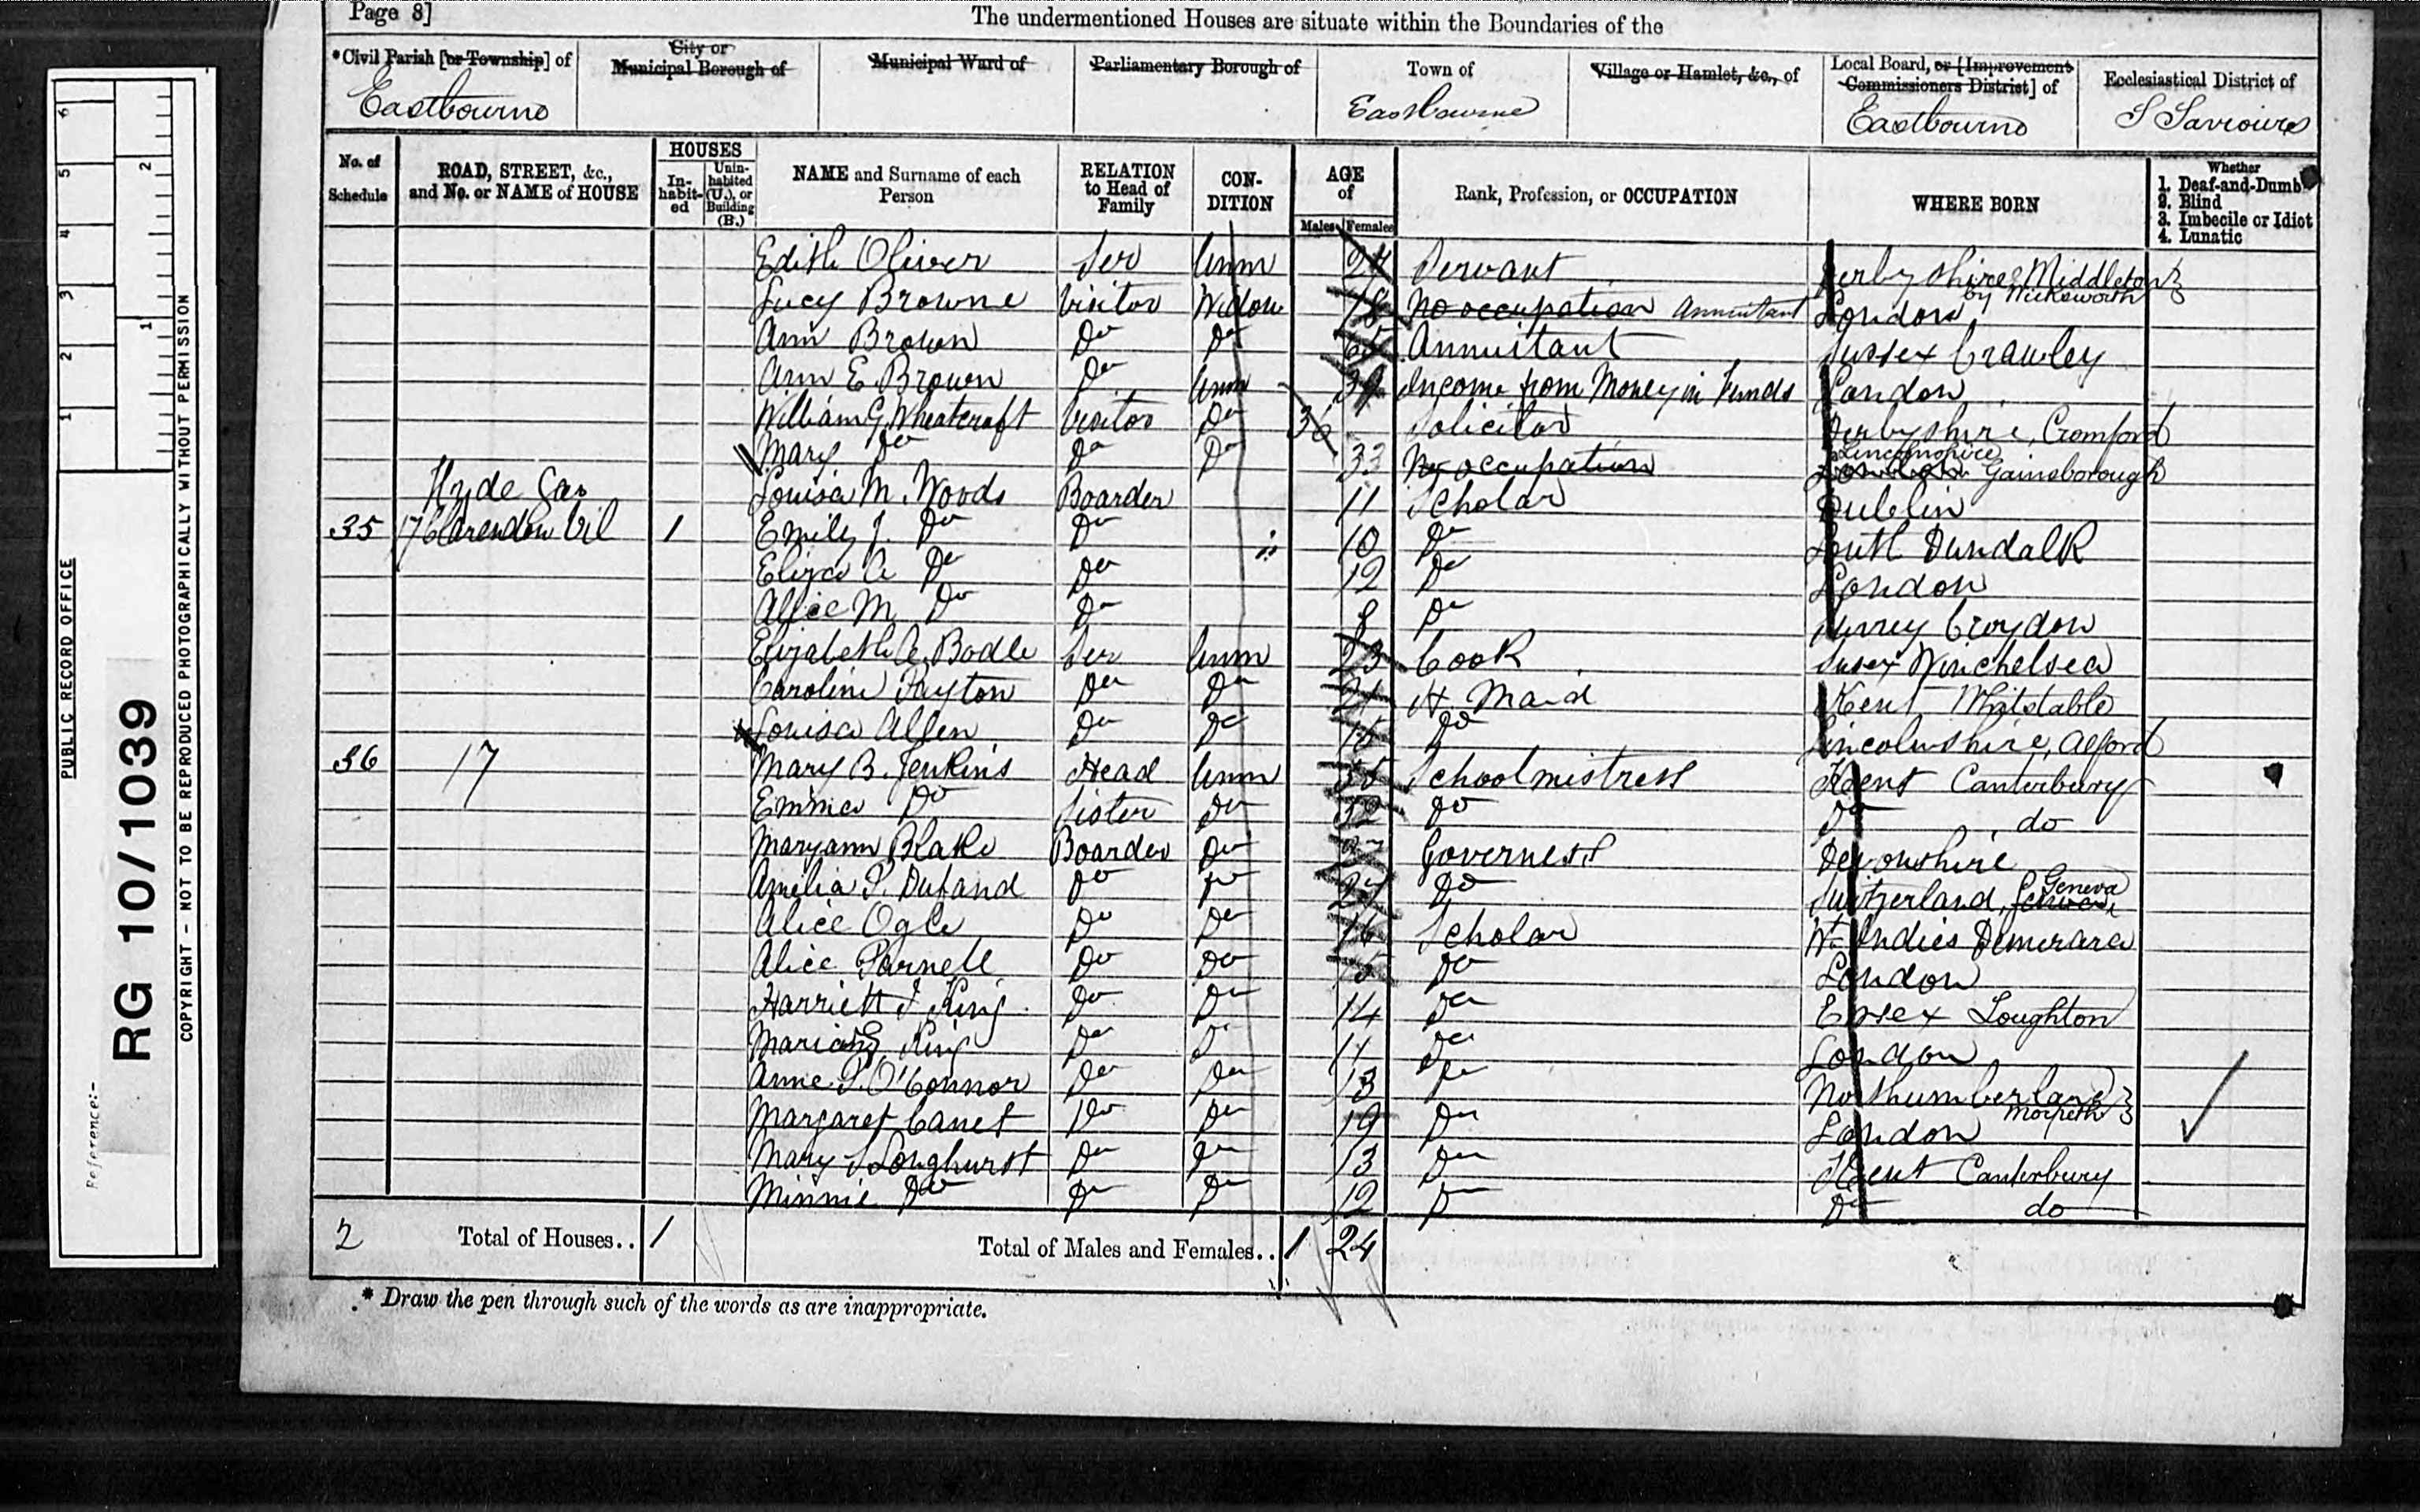 Page 8]
The undermentioned Houses are situate within the Boundaries of the
*Civil Parish [or Township] of
Eastbourne
City or Municipal Borough of
Municipal Ward of
Parliamentary Borough of
Town of
Eastbourne
Village or Hamlet, &c., of
Local Board, or [Improvement Commissioners District] of
Eastbourne
Ecclesiastical District of
S Saviours
No. of Schedule
ROAD, STREET, &c., and No. or NAME of HOUSE
HOUSES
In-habit-ed
Unin-habited (U.), or Building (B.)
NAME and Surname of each Person
RELATION to Head of Family
CON-DITION
AGE of
Males Females
Rank, Profession, or OCCUPATION
WHERE BORN
Whether
1. Deaf-and-Dumb
2. Blind
3. Imbecile or Idiot
4. Lunatic
Edith Oliver Ser Unm 24 Servant Derbyshire, Middleton by Wirksworth
Lucy Browne Visitor Widow No occupation Annuitant London
Ann Brown Do Do Annuitant Sussex Crawley
Ann E. Brown Do Unm 39 Income from Money in Funds London
William G. Wheatcroft Visitor Do 36 Solicitor Derbyshire, Cromford
Mary Do Do Do 33 No occupation Lincolnshire Gainsborough
Hyde Gar
Louisa M. Woods Boarder 11 Scholar Dublin
35 17 Clarendon Vil 1 Emily J. Do Do 10 Do Louth Dundalk
Eliza A Do Do 12 Do London
Alice M. Do Do 8 Do Surrey Croydon
Elizabeth A. Bodle Ser Unm 23 Cook Sussex Winchelsea
Caroline Do Do 21 H Maid Kent Whitstable
Louisa Allen Do Do Do Lincolnshire, Alford
36 17 Mary B. Jenkins Head Unm Schoolmistress Kent Canterbury
Emma Do Sister Do 32 Do Do do
Maryann Blake Boarder Do Governess Devonshire
Amelia P. Dufand Do Do Do Switzerland, Geneva
Alice Ogle Do Do 16 Scholar Wt Indies Demerara
Alice Parnell Do Do 15 Do London
Harriett J. King Do Do 14 Do Essex Loughton
King Do Do 11 Do London
Anne P. O'Connor Do Do 13 Do Northumberland Morpeth
Margaret Canet Do Do 19 Do London
Mary S Longhurst Do Do 13 Do Kent Canterbury
Minnie Do Do Do 12 Do Do do
2 Total of Houses.. 1 Total of Males and Females.. 1 24
* Draw the pen through such of the words as are inappropriate.
PUBLIC RECORD OFFICE
Reference:-
RG 10/1039
COPYRIGHT - NOT TO BE REPRODUCED PHOTOGRAPHICALLY WITHOUT PERMISSION
1 2 3 4 5 6
1 2